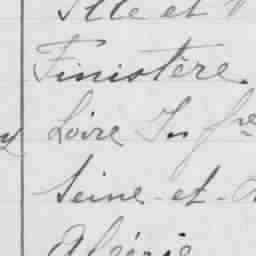 Ille et
Finistère
Loire Infre
Seine-et-
Algérie